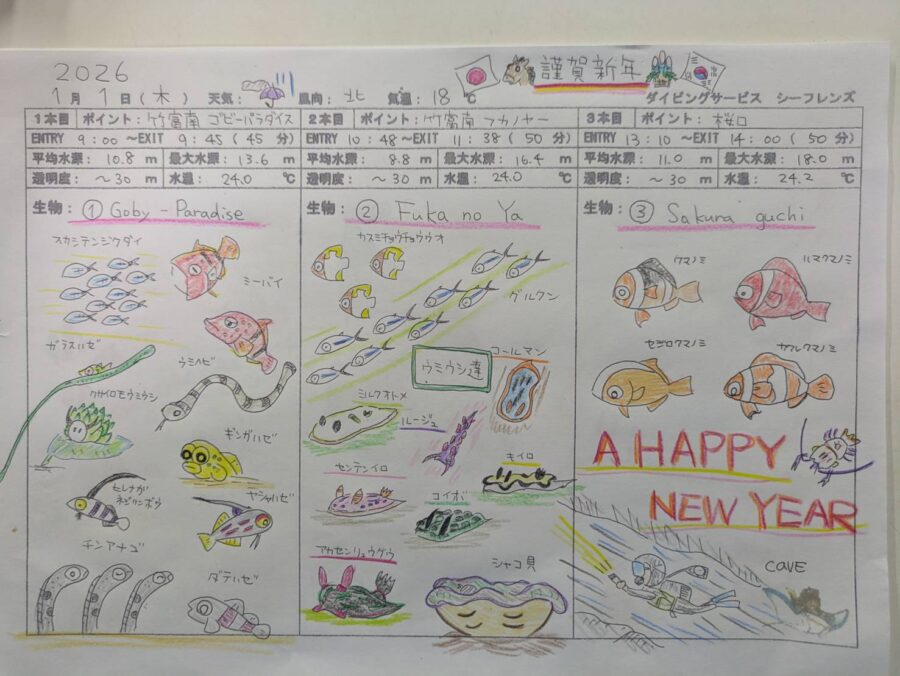 2026
謹賀新年
1月 1日(木) 天気: 風向: 北 気温: 18 ℃ ダイビングサービス シーフレンズ
1本目 ポイント: 竹富南 ゴビーパラダイス
ENTRY 9:00 ～EXIT 9:45 (45 分)
平均水深: 10.8 m 最大水深: 13.6 m
透明度: ～30 m 水温: 24.0 ℃
生物: ① Goby-Paradise
スカシテンジクダイ
ミーバイ
ガラスハゼ
ウミヘビ
クサイロモウミウシ
ギンガハゼ
ヒレナガ
ネジリンボウ
ヤシャハゼ
チンアナゴ
ダテハゼ
2本目 ポイント: 竹富南 フカノヤー
ENTRY 10:48 ～EXIT 11:38 (50 分)
平均水深: 8.8 m 最大水深: 16.4 m
透明度: ～30 m 水温: 24.0 ℃
生物: ② Fuka no Ya
カスミチョウチョウウオ
グルクン
ウミウシ達
コールマン
シルクオトメ
ルージュ
センテンイロ
キイロ
コイボ
アカセンリュウグウ
シャコ貝
3本目 ポイント: 桜口
ENTRY 13:10 ～EXIT 14:00 (50 分)
平均水深: 11.0 m 最大水深: 18.0 m
透明度: ～30 m 水温: 24.2 ℃
生物: ③ Sakura guchi
クマノミ
ハマクマノミ
セジロクマノミ
カクレクマノミ
A HAPPY
NEW YEAR
CAVE